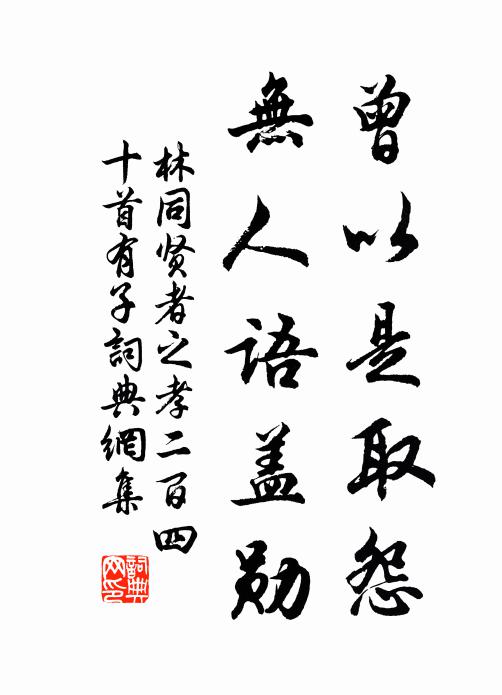 曾以是取怨
無人語盖勋
林同贤者之孝二百四
十首有子詞典網集
詞典
网印